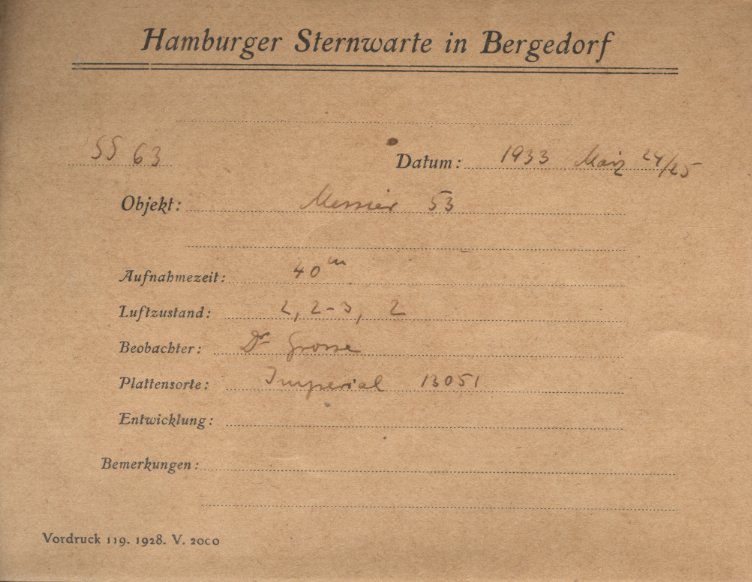 Hamburger Sternwarte in Bergedorf
SS 63 Datum: 1933 März 24/25
Objekt: Messier 53
Aufnahmezeit: 40 m
Luftzustand: 2, 2-3, 2
Beobachter: Dr Grosse
Plattensorte: Imperial 13051
Entwicklung:
Bemerkungen:
Vordruck 119. 1928. V. 2000